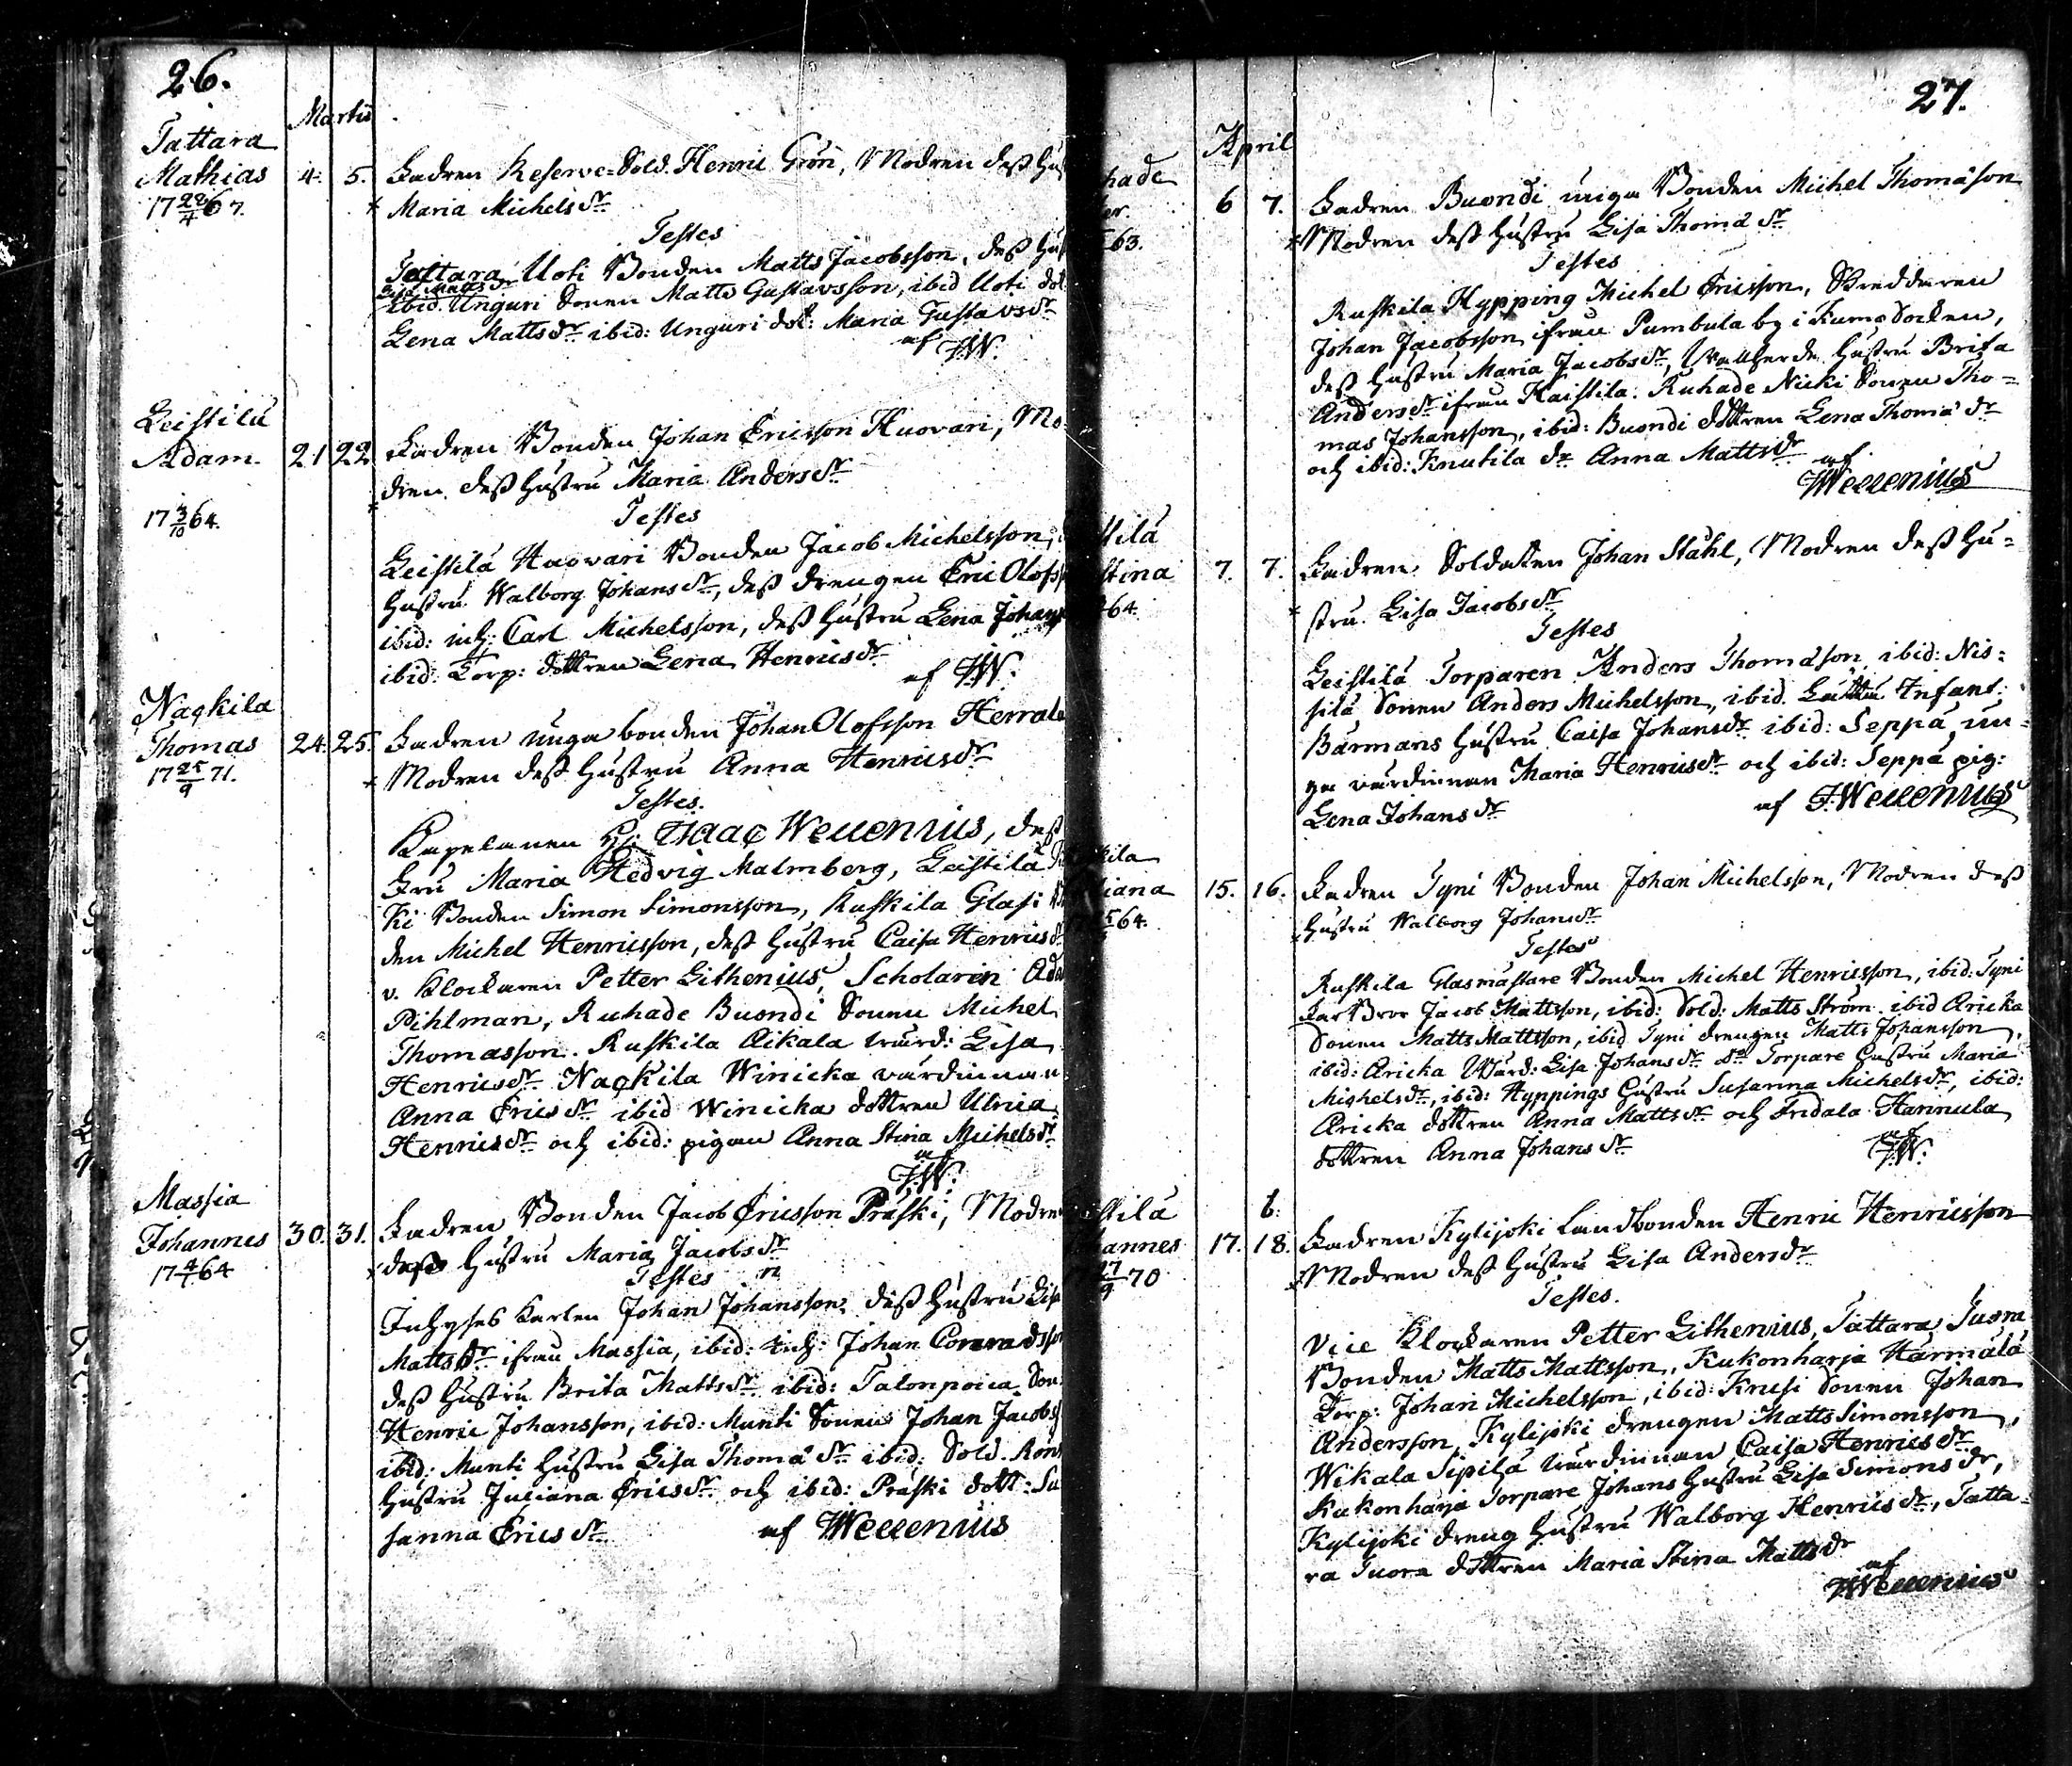 26.
Martii
Tattara
Mathias 4. 5. Fadren Reserve=Sold. Henric Grön, Modren dess Hu
17 22/4 67.
Maria Michels dr
Testes
Tattara Uoti Bonden Matts Jacobsson, dess Hus
ibid. Unguri Sonen Matts Gustavsson, ibid Uoti dot
Lena Matts dr ibid: Unguri dot: Maria Gustavs dr
af IW.
Leistilä
Adam. 21 22 Fadren Bonden Johan Ericsson Huovari, Mo
dren dess Hustru Maria Anders dr
17 3/10 64.
Testes
Leistilä Huovari Bonden Jacob Michelsson,
Hustru Walborg Johans dr, dess drengen Eric Olofss
ibid: inh: Carl Michelsson, dess Hustru Lena Johans
ibid: Torp: dottren Lena Henrics dr
af IW.
Nackila
Thomas 24. 25. Fadren unga bonden Johan Olofsson Herrala
17 25/9 71.
Modren dess Hustru Anna Henrics dr
Testes.
Kapelanen Hr: Isaac Wellenius, dess
Fru Maria Hedvig Malmberg, Leistilä
ki Bonden Simon Simonsson, Ruskila Glasi
den Michel Henricsson, dess Hustru Caisa Henrics d
v. Klockaren Petter Lithenius, Scholaren Ada
Pihlman, Ruhade Buondi Sonen Michel
Thomasson. Ruskila Äikälä värd: Lisa
Henrics dr Nackila Winicka värdinnan
Anna Erics dr ibid Winicka dottren Ulrica
Henrics dr och ibid: pigan Anna Stina Michels dr
af
IW.
Massia
Johannes 30. 31. Fadren Bonden Jacob Ericsson Präski, Modre
17 4/1 64
dess Hustru Maria Jacobs dr
Testes
Inhyses Karlen Johan Johansson, dess Hustru Lisa
Matts dr ifrån Massia, ibid: inh: Johan Conradsson
dess Hustru Brita Matts dr ibid: Talonpoica Son
Henric Johansson, ibid: Munti Sonen Johan Jacobs
ibid: Munti Hustru Lisa Thomä dr ibid: Sold. Rön
Hustru Juliana Erics dr och ibid: Präski dott: Su
sanna Erics dr
af IWellenius
27.
April
hade
6 7. Fadren Buondi unga Bonden Michel Thomäson
63.
Modren dess Hustru Lisa Thomä dr
Testes
Ruskila Hypping Michel Ericsson, Skreddaren
Johan Jacobsson ifrån Pumbula by i Kumo Socken,
dess Hustru Maria Jacobs dr, Hustru Brita
Anders dr ifrån Kaistila. Ruhade Nicki Sonen Tho=
mas Johansson, ibid: Buondi dottren Lena Thomä dr
och ibid: Knutila dr Anna Matts dr
af
IWellenius
stilä
stina 7. 7. Fadren Soldaten Johan Ståhl, Modren dess Hu=
64.
stru Lisa Jacobs dr
Testes
Leistilä Torparen Anders Thomäson, ibid: Nis=
silä Sonen Anders Michelsson, ibid. Infant:
Bärmans Hustru Caisa Johans dr ibid: Seppä un=
ga värdinnan Maria Henrics dr och ibid: Seppä pig:
Lena Johans dr
af IWellenius
kila
iana 15. 16. Fadren Tyni Bonden Johan Michelsson, Modren dess
64.
Hustru Walborg Johans dr
Testes
Ruskila Glasmästare Bonden Michel Henricsson, ibid: Tyni
Far Bror Jacob Mattsson, ibid: Sold: Matts Ström. ibid Äricka
Sonen Matts Mattsson, ibid Tyni drengen Matts Johansson,
ibid: Äricka Wärd: Lisa Johans dr do Torpare Hustru Maria
Michels dr, ibid: Hyppings Hustru Susanna Michels dr, ibid:
Äricka dottren Anna Matts dr och Fridala Hannula
dottren Anna Johans dr
af
IW.
stilä
annes 17. 18. Fadren Kylijoki Landbonden Henric Henricsson
27/9 70
Modren dess Hustru Lisa Anders dr
Testes.
Vice Klockaren Petter Lithenius, Tattara Juora
Bonden Matts Mattsson, Kukonharja Härmälä
Torp: Johan Michelsson, ibid: Krusi Sonen Johan
Andersson, Kylijoki drengen Matts Simonsson,
Wikala Sipilä värdinnan Caisa Henrics dr
Kukonharja Torpare Johans Hustru Lisa Simons dr,
Kylijoki dreng Hustru Walborg Henrics dr, Tatta=
ra Juora dottren Maria Stina Matts dr
af
IWellenius